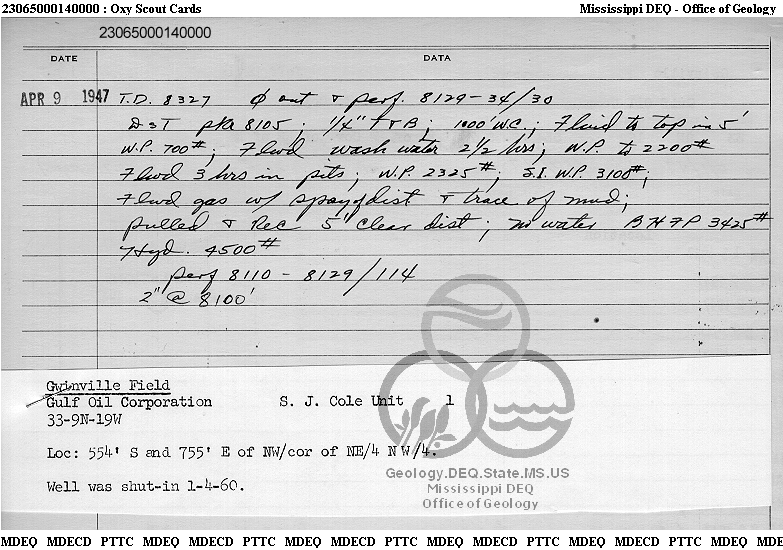 23065000140000 : Oxy Scout Cards Mississippi DEQ - Office of Geology
23065000140000
DATE DATA
APR 9 1947 T.D. 8327 Ø out & perf. 8129-34/30
DST pkr 8105; 1/4" T & B; 1000' WC; Flwd to top in 5'
W.P. 700#; Flwd wash water 2 1/2 hrs; W.P. to 2200#
Flwd 3 hrs in pits; W.P. 2325#; S.I. W.P. 3100#;
Flwd gas w/ spray of dist & trace of mud;
pulled & Rec 5' clear dist; no water BHFP 3425#
Hyd. 4500#
perf 8110 - 8129/114
2" @ 8100'
Gwinville Field
Gulf Oil Corporation S. J. Cole Unit 1
33-9N-19W
Loc: 554' S and 755' E of NW/cor of NE/4 NW/4.
Well was shut-in 1-4-60.
Geology.DEQ.State.MS.US
Mississippi DEQ
Office of Geology
MDEQ MDECD PTTC MDEQ MDECD PTTC MDEQ MDECD PTTC MDEQ MDECD PTTC MDEQ MDECD PTTC MDEQ MDE